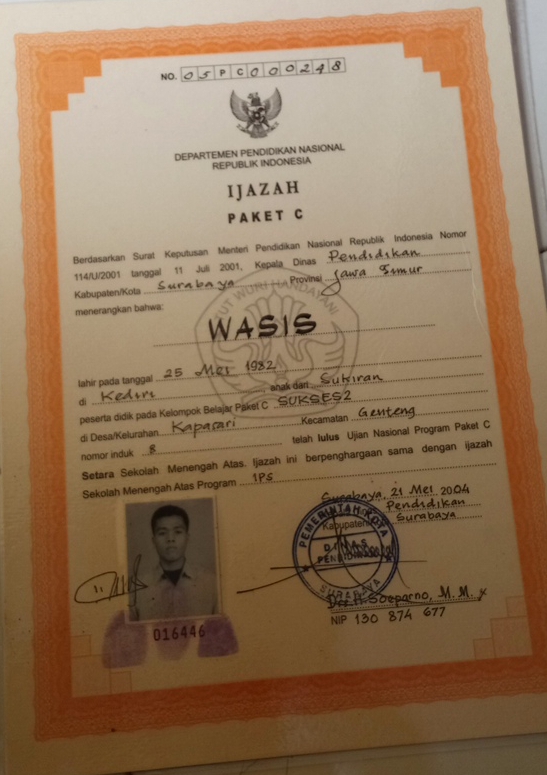 NO. 05PC0000248
DEPARTEMEN PENDIDIKAN NASIONAL
REPUBLIK INDONESIA
IJAZAH
PAKET C
Berdasarkan Surat Keputusan Menteri Pendidikan Nasional Republik Indonesia Nomor
114/U/2001 tanggal 11 Juli 2001, Kepala Dinas Pendidikan
Kabupaten/Kota Surabaya Provinsi Jawa Timur
menerangkan bahwa:
TUT WURI HANDAYANI
WASIS
lahir pada tanggal 25 Mei 1982
di Kediri anak dari Sukiran
peserta didik pada Kelompok Belajar Paket C SUKSES2
di Desa/Kelurahan Kapasari Kecamatan Genteng
nomor induk 8 telah lulus Ujian Nasional Program Paket C
Setara Sekolah Menengah Atas. Ijazah ini berpenghargaan sama dengan ijazah
Sekolah Menengah Atas Program IPS
Surabaya, 21 Mei 2004
Pendidikan
Kabupaten Surabaya
PEMERINTAH KOTA
DINAS
PENDIDIKAN
SURABAYA
Soeparno, M.M.
NIP 130 874 677
016446